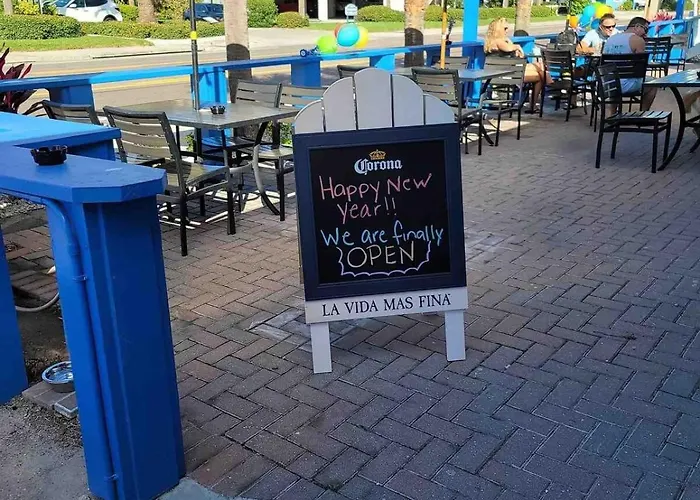 Corona
Happy New
Year!!
We are finally
OPEN
LA VIDA MAS FINA